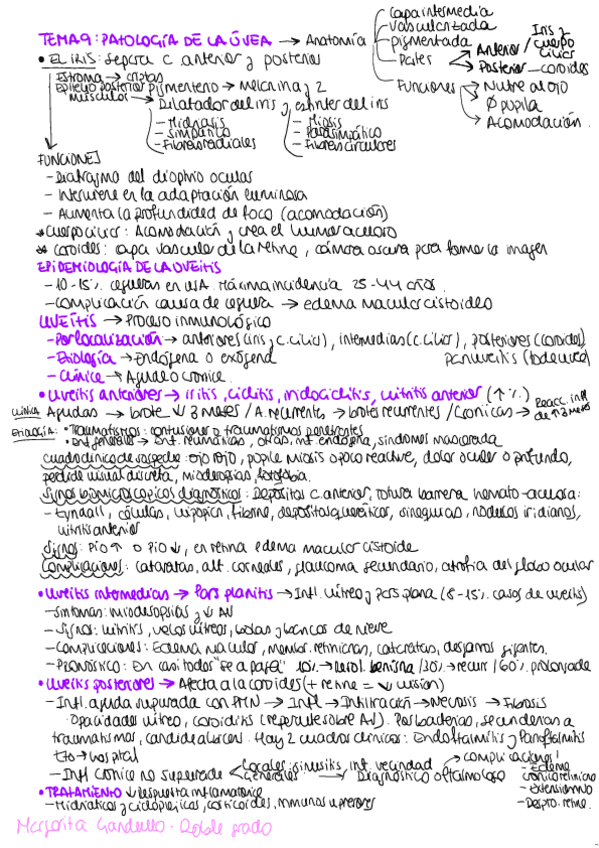 TEMA 9: PATOLOGÍA DE LA ÚVEA → Anatomía
Capa intermedia
Vascularizada
Pigmentada
Partes
Anterior
Iris y cuerpo ciliar
Posterior - coroides
Funciones
Nutre al ojo
Ø pupila
Acomodación.
• EL IRIS: separa c anterior y posterior
Estroma → criptas
Epitelio posterior pigmenteno → melanina y 2
músculos → Dilatador del iris y esfínter del iris
- Midriasis
- Simpático
- Fibras radiales
- Miosis
- Parasimpático
- Fibras circulares
FUNCIONES
- Diafragma del dioptrio ocular
- Interviene en la adaptación luminosa
- Aumenta la profundidad de foco (acomodación)
* Cuerpo ciliar: Acomodación y crea el humor acuoso
* Coroides: capa vascular de la retina, cámara oscura para formar la imagen
EPIDEMIOLOGÍA DE LA UVEITIS
- 10-15% cegueras en USA. Máxima incidencia 25-44 años.
- Complicación causa de ceguera → edema macular cistoideo
UVEÍTIS → Proceso inmunológico
- Por localización → anteriores (iris, c. ciliar), intermedias (c. ciliar), posteriores (coroides)
- Etiología → Endógena o exógena panuveitis (toda uvea)
- Clínica → Aguda o cronica.
• Uveitis anteriores → iritis, ciclitis, iridociclitis, vitritis anterior (↑%)
Clínica Agudas → brote ↓ 3 meses / A. recurrentes → brotes recurrentes / Cronicas → Reacc. infl de ↑ 3 meses
ETIOLOGÍA: • Traumatismos: contusiones o traumatismos penetrantes
• Enf generales → Enf. reumáticas, otras, inf. endógena, síndromes mascarada
Cuadro clínico de sospecha: ojo rojo, pupila miosis o poco reactiva, dolor ocular o profundo,
perdida visual discreta, miodesopsias, fotofobia.
Signos biomicroscopicos diagnósticos: Depósitos c. anterior, rotura barrera hemato-acuosa:
- Tyndall, células, hipopion, fibrina, depósitos queráticos, sinequias, nódulos iridianos,
vitritis anterior
Signos: PIO ↑ o PIO ↓, en retina edema macular cistoide
Complicaciones: cataratas, alt. corneales, glaucoma secundario, atrofia del globo ocular
• Uveitis intermedias → Pars planitis → Infl. vítreo y pars plana (8-15% casos de uveitis)
- Síntomas: miodesopsias y ↓ AV
- Signos: vitritis, velos vítreos, bolas y bancos de nieve
- Complicaciones: Edema macular, membr. retinianas, cataratas, desgarros gigantes.
- Pronóstico: En casi todos 10% → evol. benigna / 30% → recurr / 60% prolongada
• Uveitis posteriores → Afecta a la coroides (+ retina = ↓ visión)
- Infl. aguda supurada con PMN → Infl → Infiltración → Necrosis → Fibrosis
Opacidades vítreo, coroiditis (repercute sobre AV). Por bacterias, secundarias a
traumatismos, candida albicans. Hay 2 cuadros clínicos: Endoftalmitis y Panoftalmitis
Tto → hospital
- Infl Cronica no supurada
Locales: sinusitis, inf. vecindad
Generales
Diagnóstico oftalmologo
complicaciones
- Edema cronico retiniano
- Desp. retina.
• TRATAMIENTO ↓ respuesta inflamatoria
- Midriaticos y ciclopléjicos, corticoides, inmunosupresores
Margarita Gandullo - Doble grado